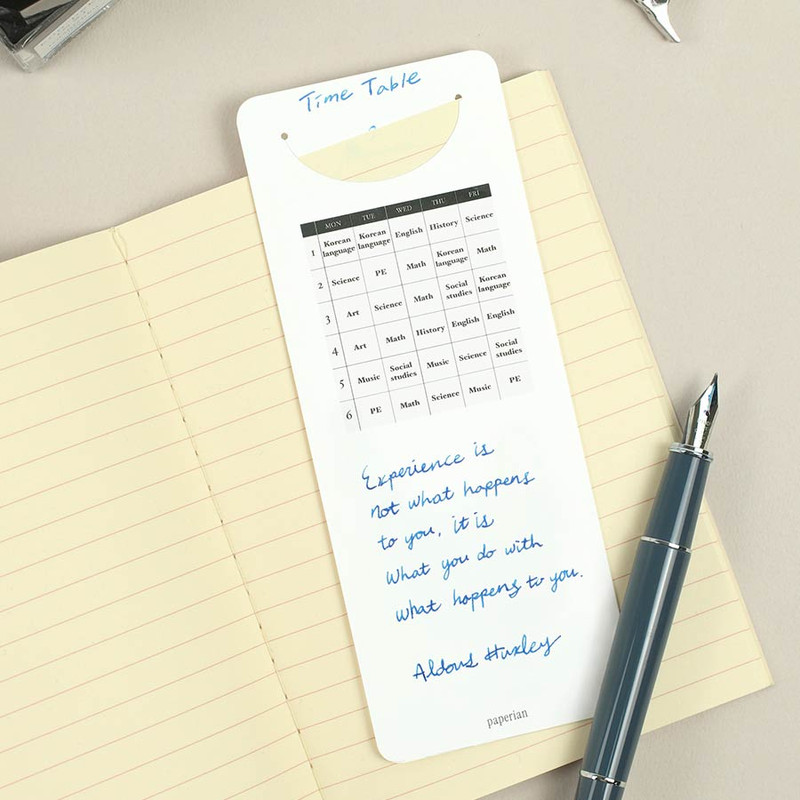 Time Table
MON TUE WED THU FRI
1 Korean language Korean language English History Science
2 Science PE Math Korean language Math
3 Art Science Math Social studies Korean language
4 Art Math History English English
5 Music Social studies Music Science Social studies
6 PE Math Science Music PE
Experience is
not what happens
to you, it is
what you do with
what happens to you.
Aldous Huxley
paperian